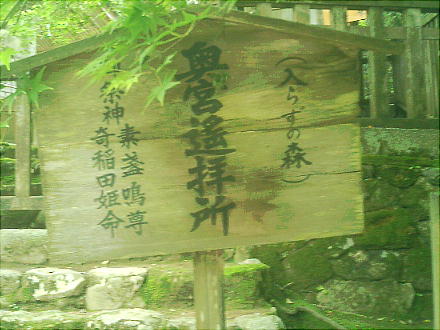 (入らずの森)
奥宮遙拝所
御祭神
素盞嗚尊
奇稲田姫命